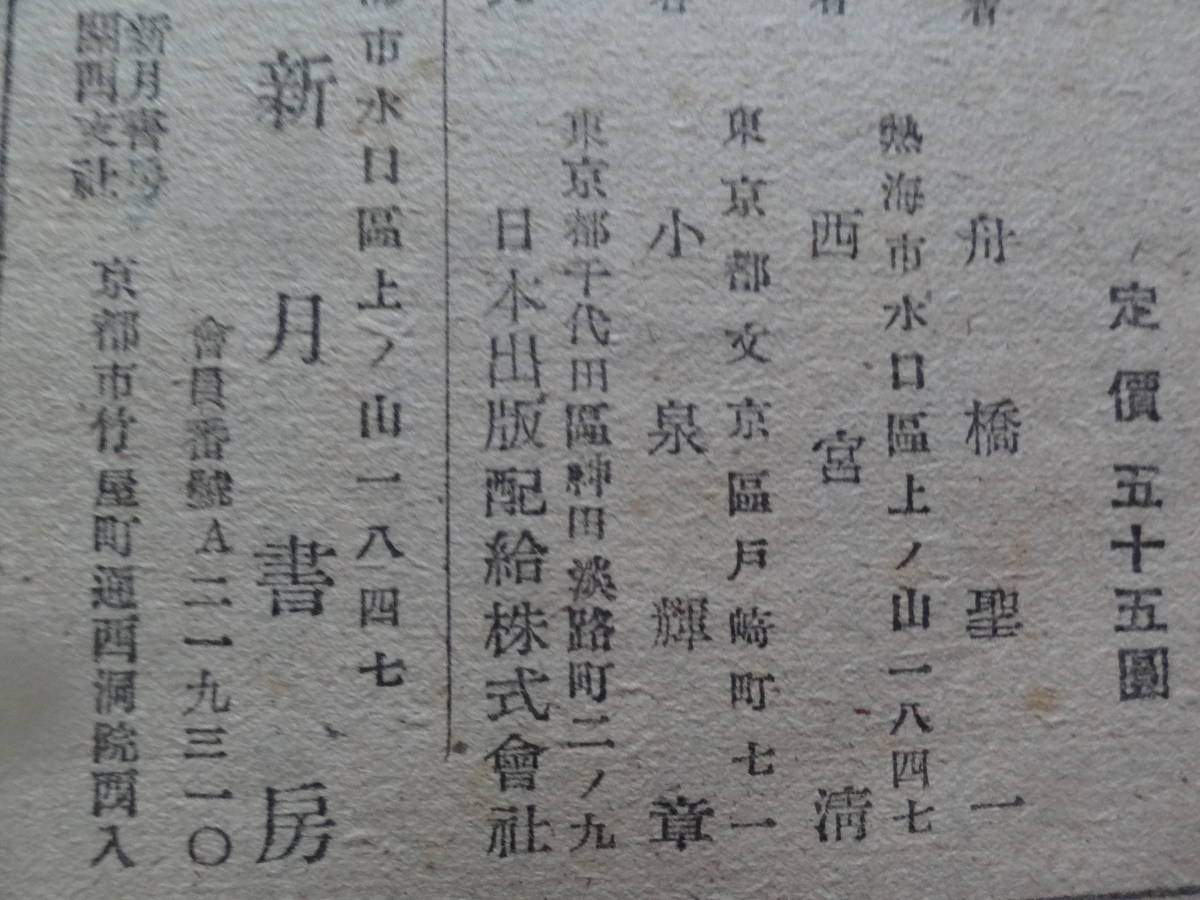 定價五十五圓
者 舟橋聖一
熱海市水口區上ノ山一八四七
者 西宮清
東京都文京區戸崎町七一
者 小泉輝章
東京都千代田區神田淡路町二ノ九
日本出版配給株式會社
市水口區上ノ山一八四七
新月書房
會員番號A二一九三一〇
新月書房
關西支社 京都市竹屋町通西洞院西入